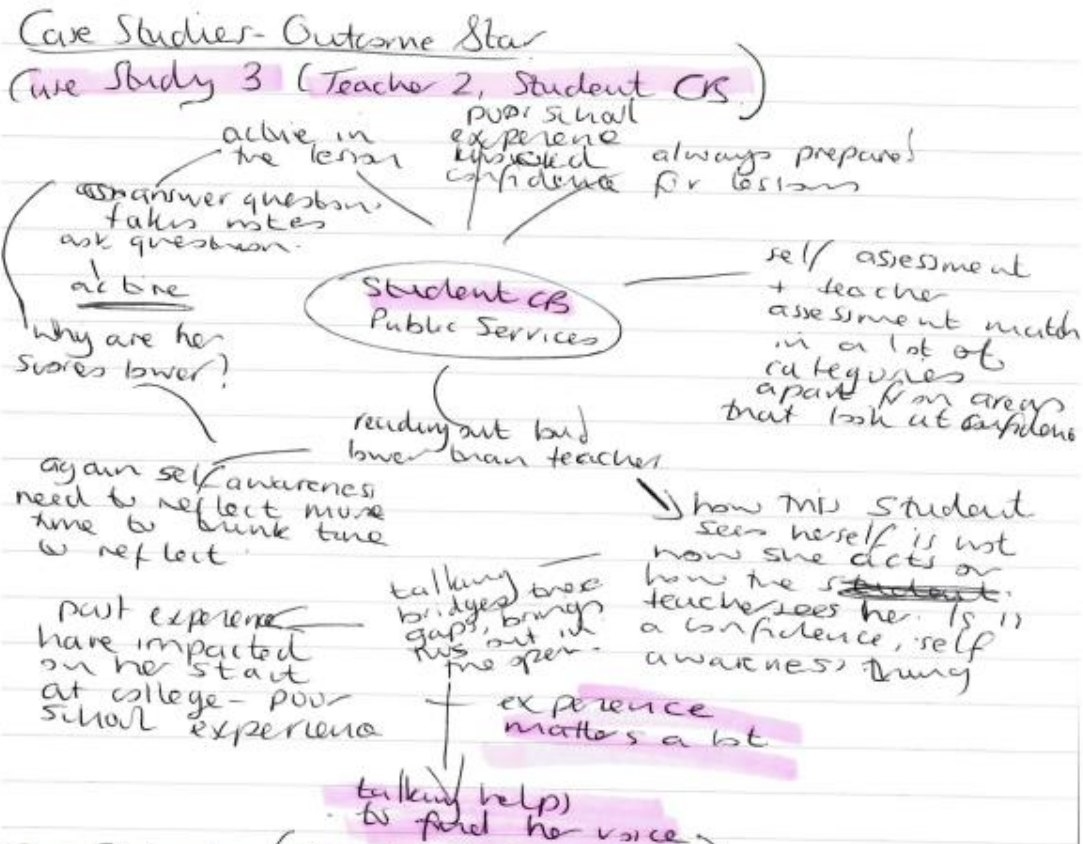 Case Studies - Outcome Star
Case Study 3 (Teacher 2, Student CB)
active in
the lesson
poor school
experience
confidence
always prepared
for lessons
answer questions
takes notes
ask question.
active
why are her
scores lower?
Student CB
Public Services
self assessment
+ teacher
assessment match
in a lot of
categories
apart from areas
that look at confidence
reading out loud
lower than teacher
again self awareness
need to reflect more
time to think time
to reflect
how this student
sees herself is not
how she acts or
how the student
teacher sees her. Is it
a confidence, self
awareness thing
talking
bridges these
gaps, brings
this out in
the open.
past experience
have impacted
on her start
at college - poor
school experience
experience
matters a lot
talking helps
to find her voice